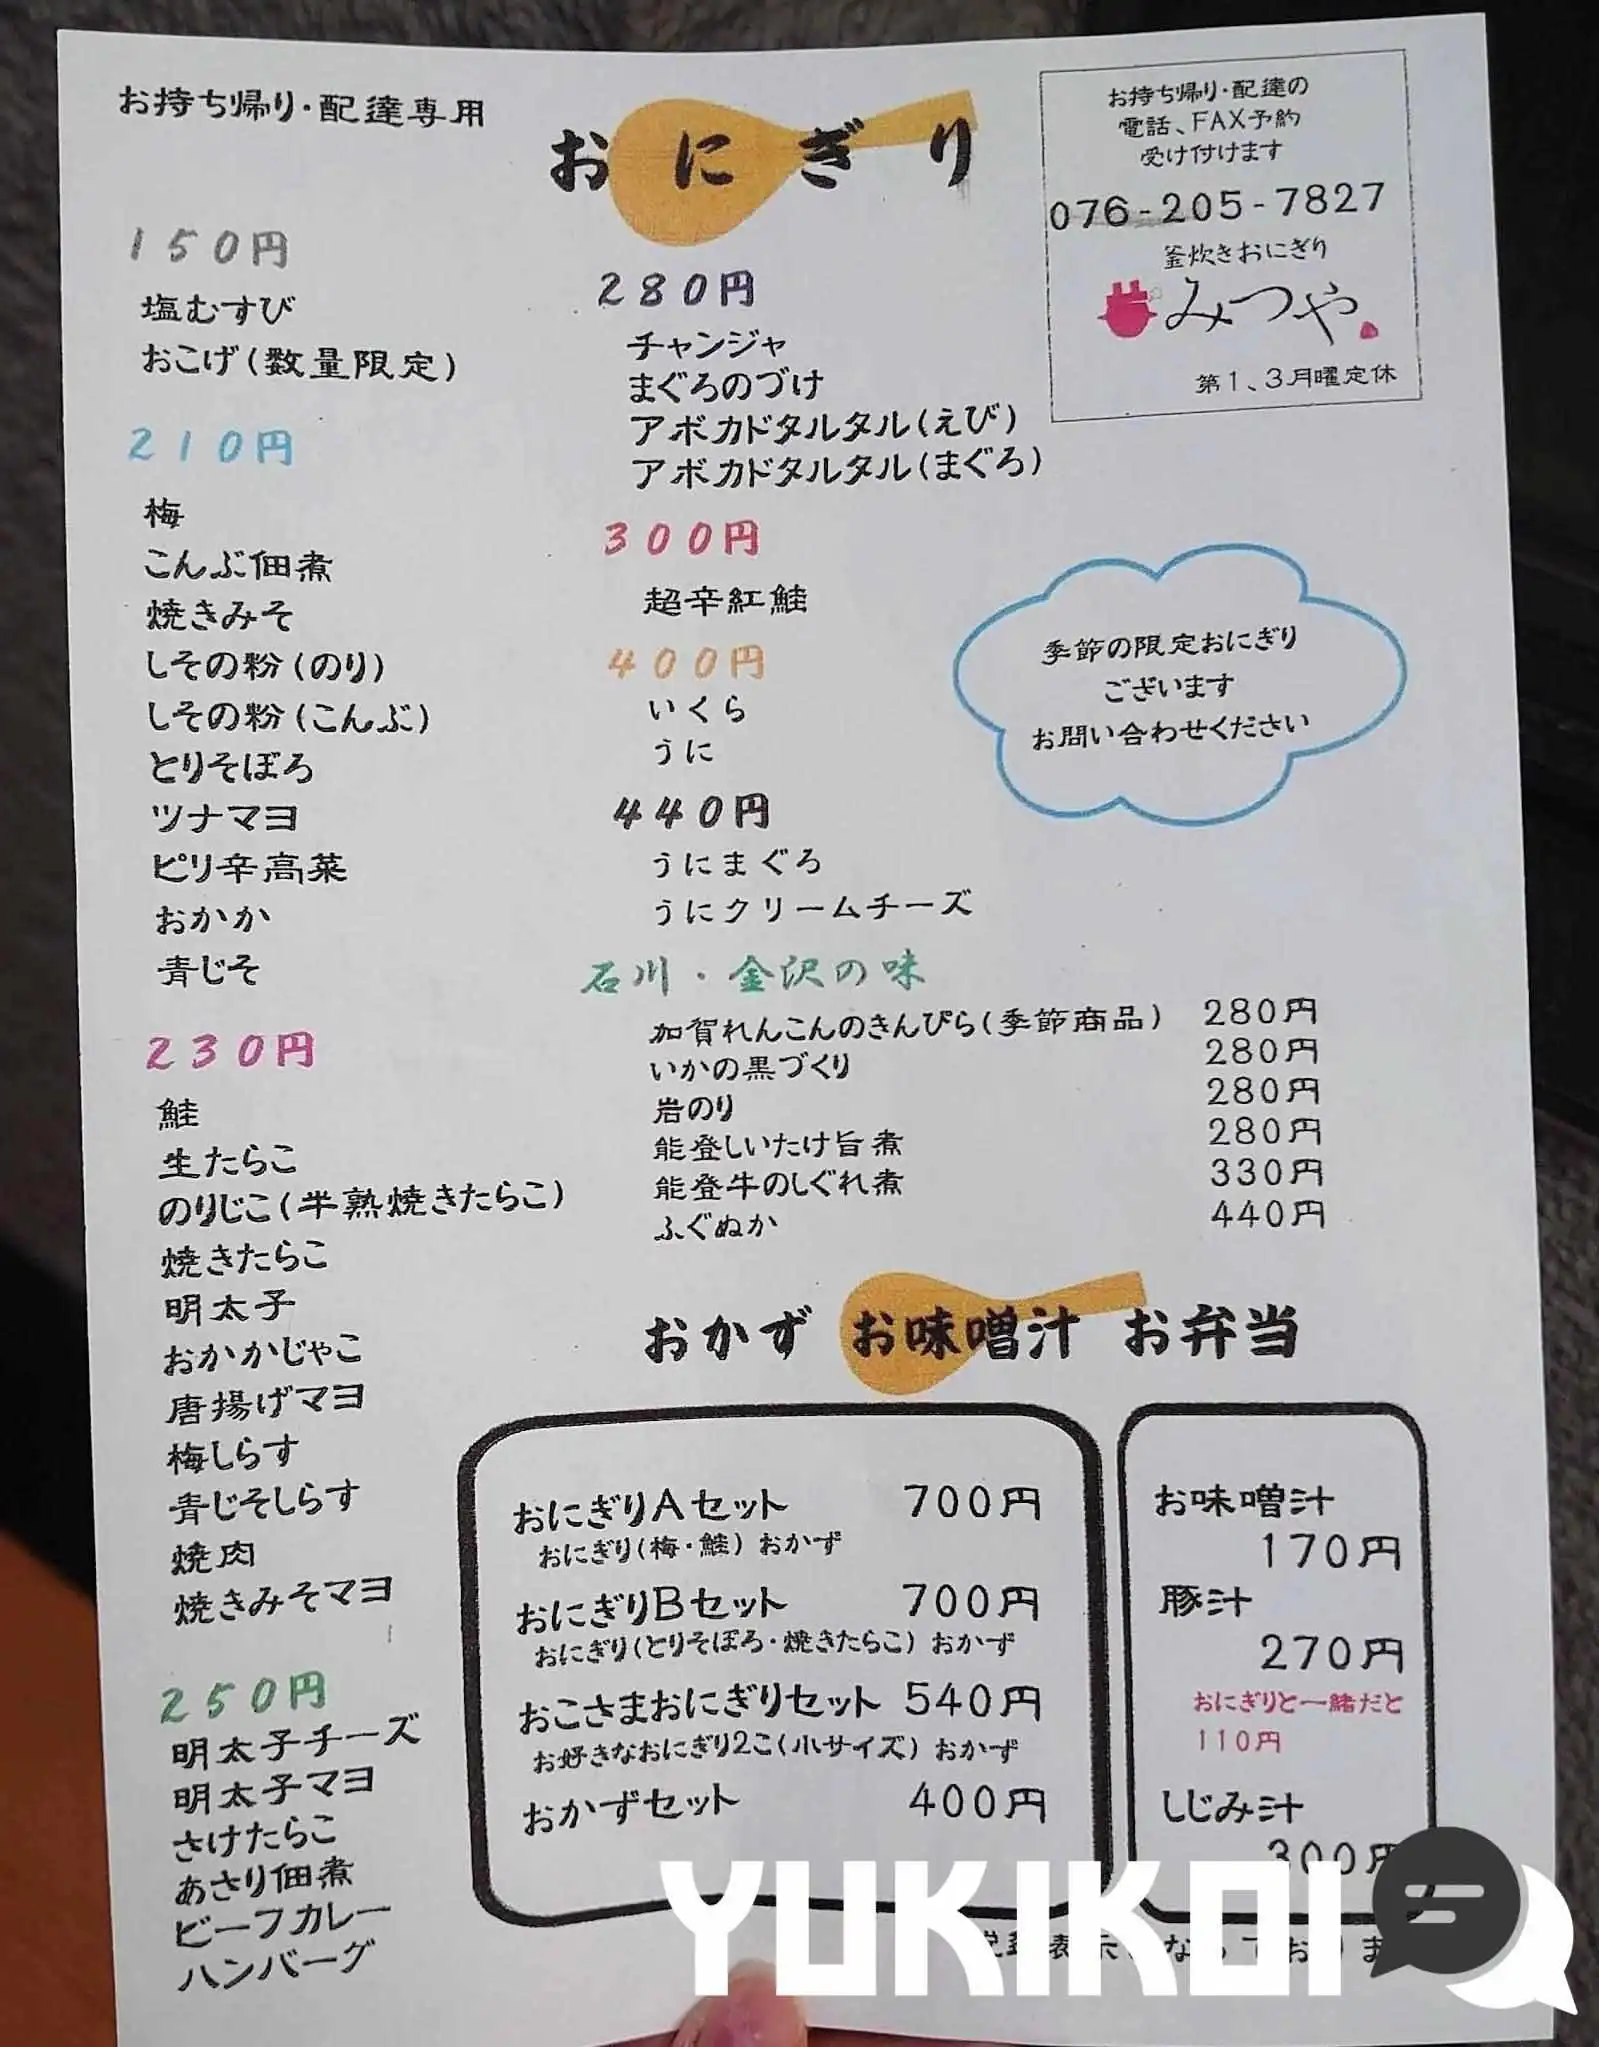 お持ち帰り・配達専用
おにぎり
お持ち帰り・配達の
電話、FAX予約
受け付けます
076-205-7827
釜炊きおにぎり
みつや
第1、3月曜定休
150円
塩むすび
おこげ(数量限定)
210円
梅
こんぶ佃煮
焼きみそ
しその粉(のり)
しその粉(こんぶ)
とりそぼろ
ツナマヨ
ピリ辛高菜
おかか
青じそ
230円
鮭
生たらこ
のりじこ(半熟焼きたらこ)
焼きたらこ
明太子
おかかじゃこ
唐揚げマヨ
梅しらす
青じそしらす
焼肉
焼きみそマヨ
250円
明太子チーズ
明太子マヨ
さけたらこ
あさり佃煮
ビーフカレー
ハンバーグ
280円
チャンジャ
まぐろのづけ
アボカドタルタル(えび)
アボカドタルタル(まぐろ)
300円
超辛紅鮭
400円
いくら
うに
440円
うにまぐろ
うにクリームチーズ
季節の限定おにぎり
ございます
お問い合わせください
石川・金沢の味
加賀れんこんのきんぴら(季節商品) 280円
いかの黒づくり 280円
岩のり 280円
能登しいたけ旨煮 280円
能登牛のしぐれ煮 330円
ふぐぬか 440円
おかず お味噌汁 お弁当
おにぎりAセット 700円
おにぎり(梅・鮭) おかず
おにぎりBセット 700円
おにぎり(とりそぼろ・焼きたらこ) おかず
おこさまおにぎりセット 540円
お好きなおにぎり2こ(小サイズ) おかず
おかずセット 400円
お味噌汁
170円
豚汁
270円
おにぎりと一緒だと
110円
しじみ汁
300円
YUKIKOI